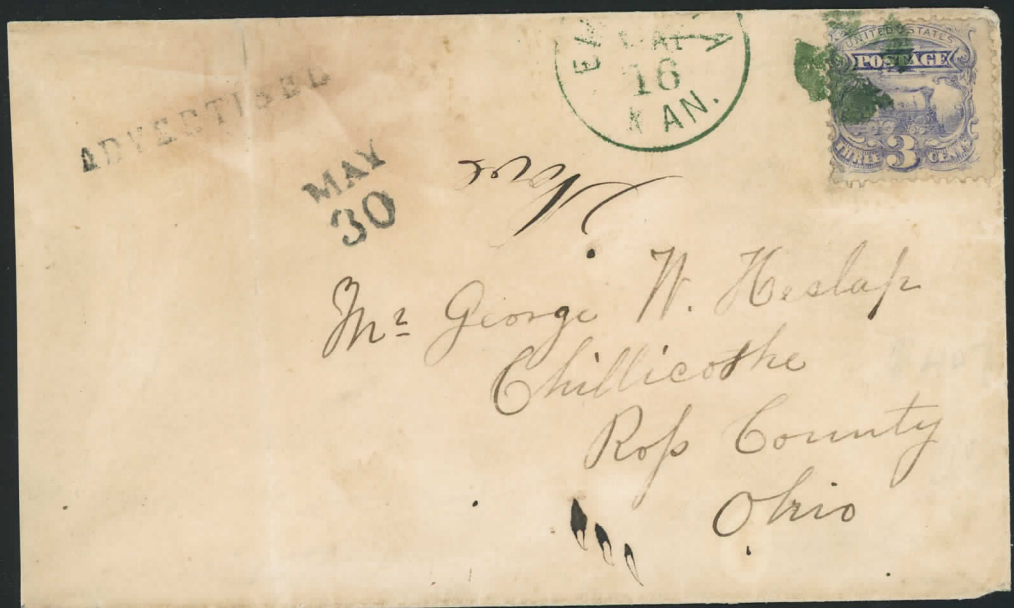 ADVERTISED
MAY
30
MAY
16
KAN.
UNITED STATES
POSTAGE
THREE 3 CENTS
Mr George W. Heslap
Chillicothe
Ross County
Ohio